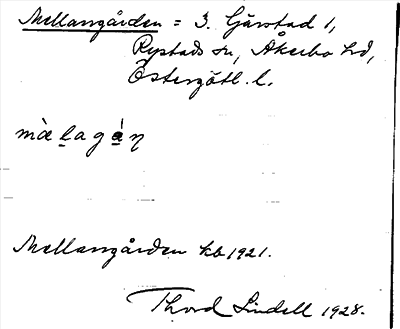 Mellangården = 3. Gärstad 1,
Rystads sn, Åkerbo hd,
Östergötl. l.
mæ̀lagáṇ
Mellangården kb 1921.
Thord Lindell 1928.